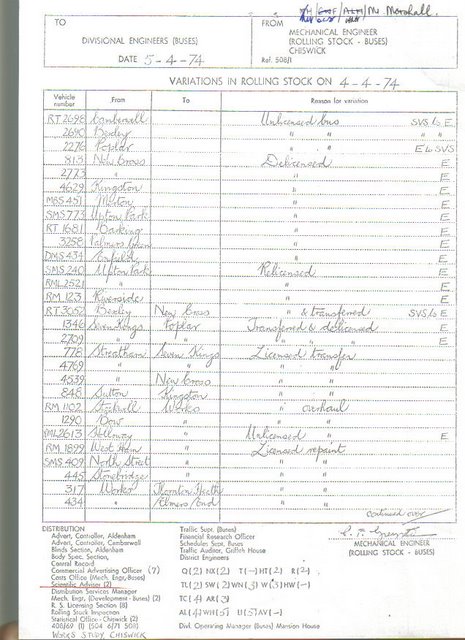 /Mr Marshall.
TO
DIVISIONAL ENGINEERS (BUSES)
DATE 5-4-74
FROM
MECHANICAL ENGINEER
(ROLLING STOCK - BUSES)
CHISWICK
Ref. 508/1
VARIATIONS IN ROLLING STOCK ON 4-4-74
Vehicle number From To Reason for variation
RT 2698 Camberwell Unlicensed bus SVS to E
2690 Bexley " " " "
2276 Poplar " " E to SVS
813 New Cross Delicensed E
2773 " " E
4629 Kingston " E
MBS 451 Merton " E
SMS 773 Upton Park " E
RT 1681 Barking " E
3258 Palmers Green " E
DMS 434 Enfield " E
SMS 240 Upton Park Relicensed E
RML 2521 " " E
RM 123 Riverside " E
RT 3052 Bexley New Cross " & transferred SVS to E
1346 Seven Kings Poplar Transferred & delicensed E
2709 " " " " E
778 Streatham Seven Kings Licensed transfer
4769 " " " "
4539 " New Cross " "
848 Sutton Kingston " "
RM 1102 Stockwell Works " overhaul
1290 Bow " " "
RML 2613 Holloway " Unlicensed " E
RM 1899 West Ham " Licensed repaint
SMS 409 North Street " " "
445 Stonebridge " " "
317 Works Thornton Heath " "
434 " Elmers End " "
continued over
DISTRIBUTION
Advert. Controller, Aldenham
Advert. Controller, Camberwell
Blinds Section, Aldenham
Body Spec. Section,
Central Record
Commercial Advertising Officer (7)
Costs Office (Mech. Engr, Buses)
Scientific Adviser (2)
Distribution Services Manager
Mech. Engr. (Development - Buses) (2)
R. S. Licensing Section (8)
Rolling Stock Inspection
Statistical Office - Chiswick (2)
WORKS STUDY, CHISWICK
Traffic Supt. (Buses)
Financial Research Officer
Schedules Supt. Buses
Traffic Auditor, Griffith House
District Engineers
Divl. Operating Manager (Buses) Mansion House
MECHANICAL ENGINEER
(ROLLING STOCK - BUSES)